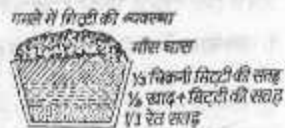 गमले में मिट्टी की व्यवस्था
मॉस घास
⅓ चिकनी मिट्टी की सतह
⅓ खाद + मिट्टी की सतह
1/3 रेत सतह